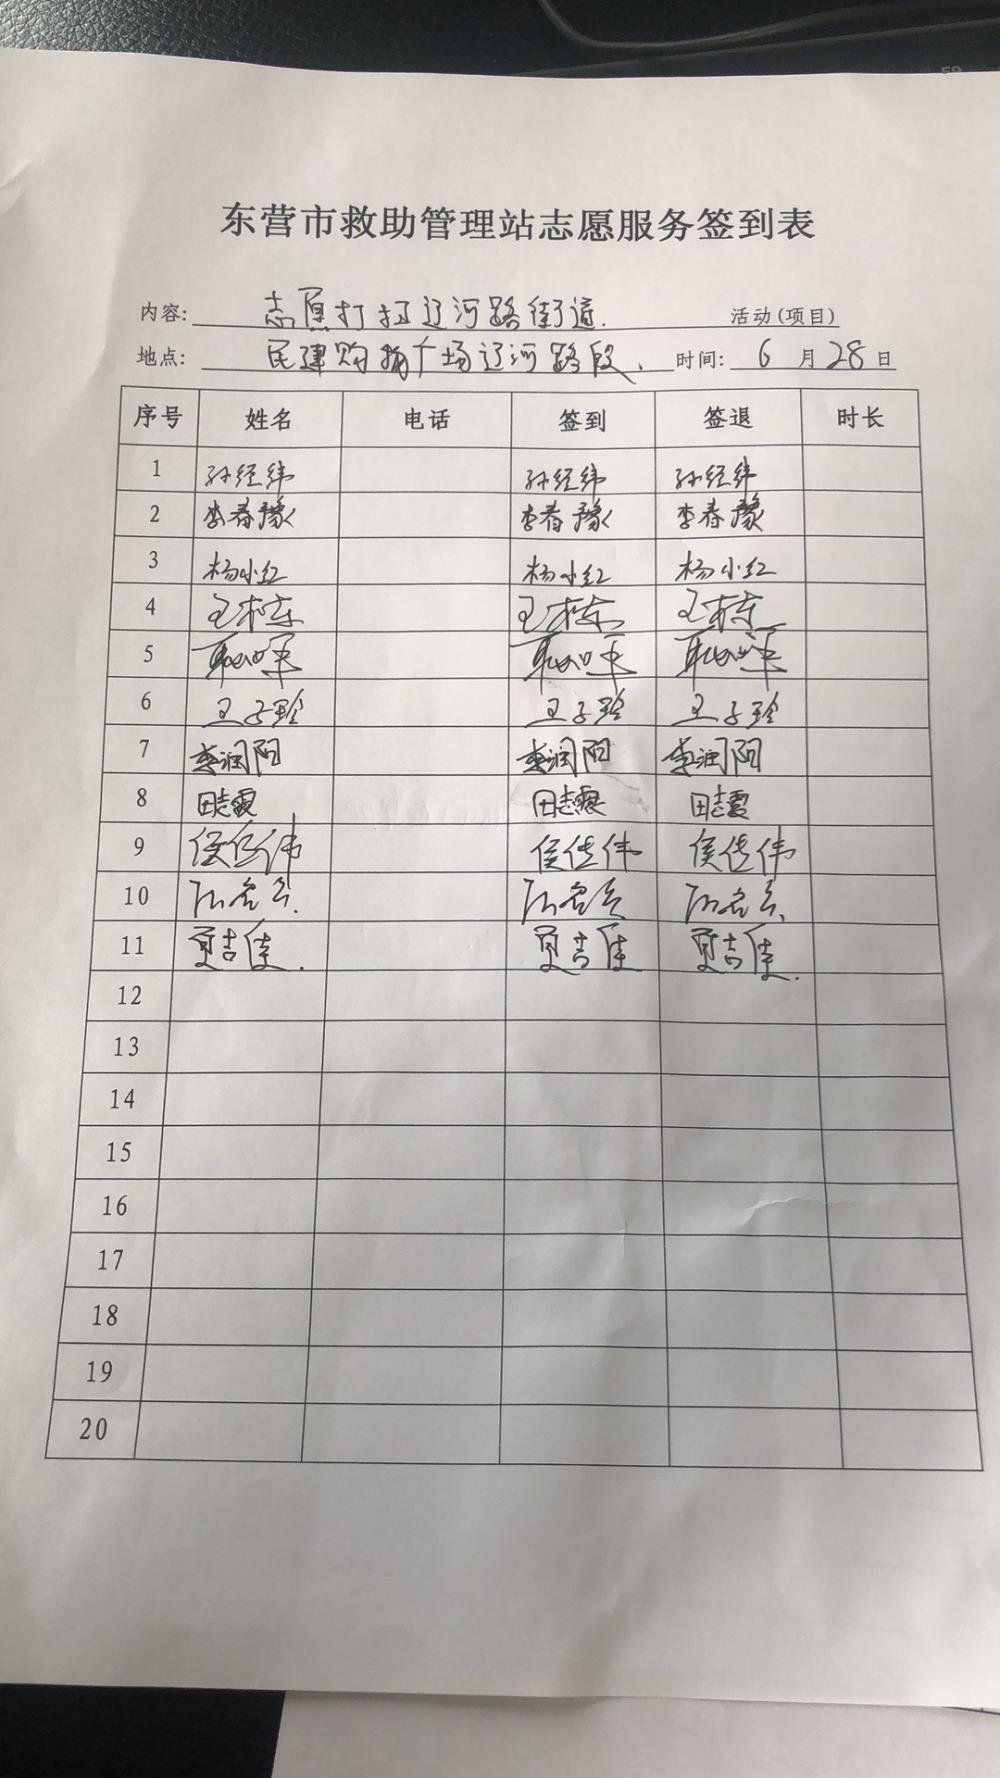 东营市救助管理站志愿服务签到表
内容: 志愿打扫辽河路街道. 活动(项目)
地点: 民建购物广场辽河路段. 时间: 6月28日
序号 姓名 电话 签到 签退 时长
1 孙经纬 孙经纬 孙经纬
2 李春豫 李春豫 李春豫
3 杨小红 杨小红 杨小红
4 王栋 王栋 王栋
5
6 王子玲 王子玲 王子玲
7 李润阳 李润阳 李润阳
8 田志霞 田志霞 田志霞
9 侯佐伟 侯佐伟 侯佐伟
10
11 夏吉佳. 夏吉佳 夏吉佳.
12
13
14
15
16
17
18
19
20